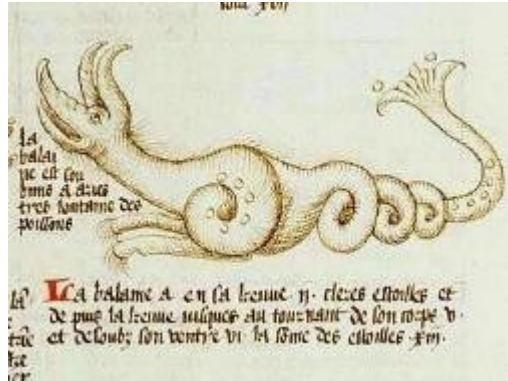 la
balai
ne est sou
tres lontaine des
poissons
La balaine a en sa keuue ij. cleres estoilles et
de puis la keuue iusques au tournant de son corps v.
et desoubz son ventre vi la sõme des estoilles xiij.